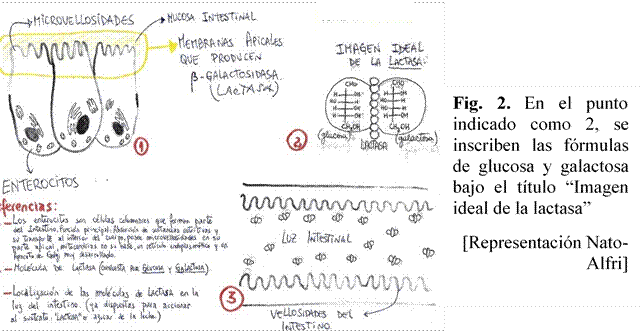 MICROVELLOSIDADES
MUCOSA INTESTINAL
MEMBRANAS APICALES
QUE PRODUCEN
β-GALACTOSIDASA.
(LACTASA)
①
ENTEROCITOS
IMAGEN IDEAL
DE LA LACTASA:
CHO
CHO
H OH
CH₂OH
CH₂OH
(glucosa)
(galactosa)
LACTASA
②
Referencias:
— Los enterocitos son células columnares que forman parte
del Intestino. Función principal: Absorción de sustancias nutritivas y
su transporte al interior del cuerpo, posee microvellosidades en su
parte apical, mitocondrias en su base, un retículo endoplasmático y un
Aparato de Golgi muy desarrollado.
— Molécula de Lactasa (compuesta por Glucosa y Galactosa).
— Localización de las moléculas de LACTASA en la
luz del intestino. (ya dispuestas para accionar
al sustrato "Lactosa" o azúcar de la leche.)
LUZ INTESTINAL
③
VELLOSIDADES DEL
INTESTINO.
Fig. 2. En el punto
indicado como 2, se
inscriben las fórmulas
de glucosa y galactosa
bajo el título "Imagen
ideal de la lactasa"
[Representación Nato-
Alfri]